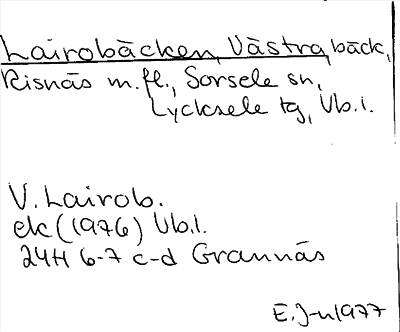 Lairobäcken, Västra, bäck,
Risnäs m.fl., Sorsele sn,
Lycksele tg, Vb.l.
V. Lairob.
ek (1976) Vb.l.
24H 6-7 c-d Grannäs
E.J-n 1977